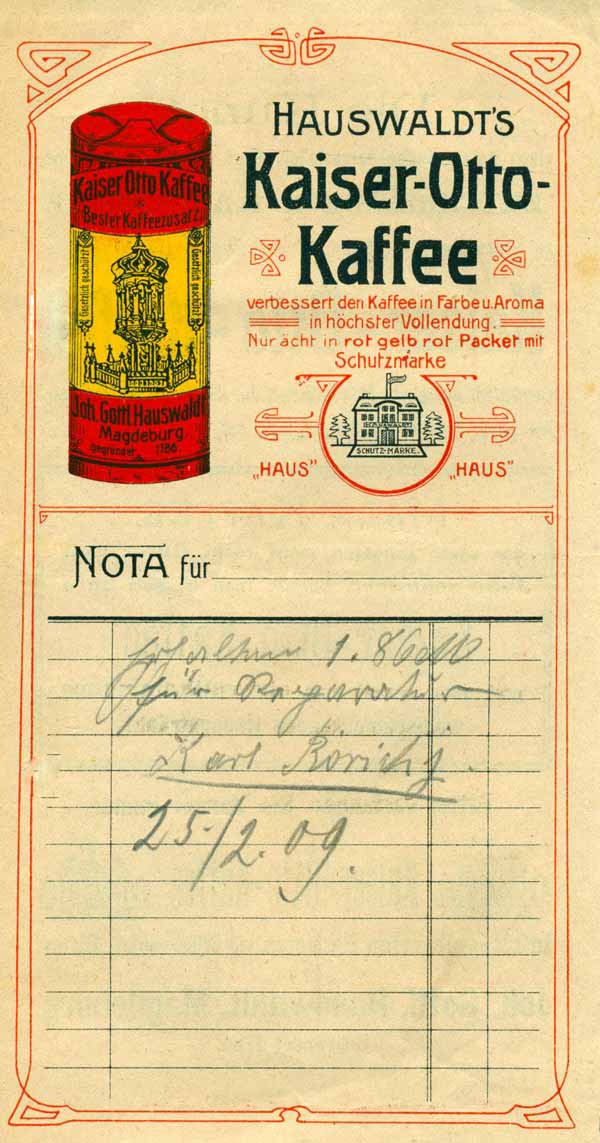 HAUSWALDT'S
Kaiser-Otto-
Kaffee
verbessert den Kaffee in Farbe u. Aroma
in höchster Vollendung.
Nur ächt in rot gelb rot Packet mit
Schutzmarke
SCHUTZ-MARKE.
„HAUS" „HAUS"
Kaiser Otto Kaffee
Bester Kaffeezusatz
Gesetzlich geschützt
Gesetzlich geschützt
Joh. Gottl. Hauswaldt
Magdeburg
gegründet 1786
NOTA für
Erhalten 1.86
für Reparatur
Karl
25./2.09.